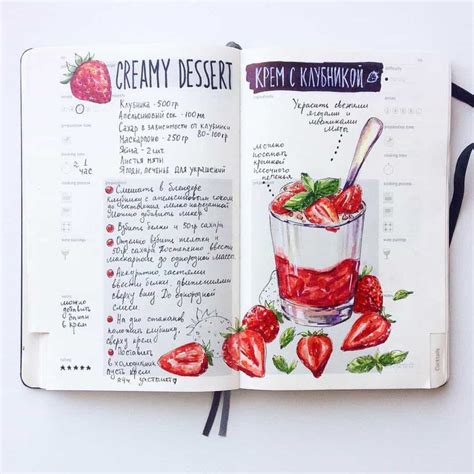 CREAMY DESSERT
Клубника - 500гр
Апельсиновый сок - 100мл
Сахар в зависимости от клубники
80-100гр
Маскарпоне - 250гр
Яйца - 2 шт.
Листья мяты
Ягоды, печенья для украшений
2 1
час
Смешать в блендере
клубнику с апельсиновым соком
можно добавить ликер
Взбить белки и 50гр сахара
Отдельно взбить желтки и
50гр сахара. Постепенно ввести
маскарпоне до однородной массы
Аккуратно частями
ввести белки, движениями
сверху вниз до однородной
смеси
На дно стаканов
положить клубнику,
сверху крем
Поставить
в холодильник
пусть крем
можно
добавить
в крем
КРЕМ С КЛУБНИКОЙ
Украсить свежими
ягодами и
мяты
можно
посыпать
крошкой
песочного
печенья
Cocktails